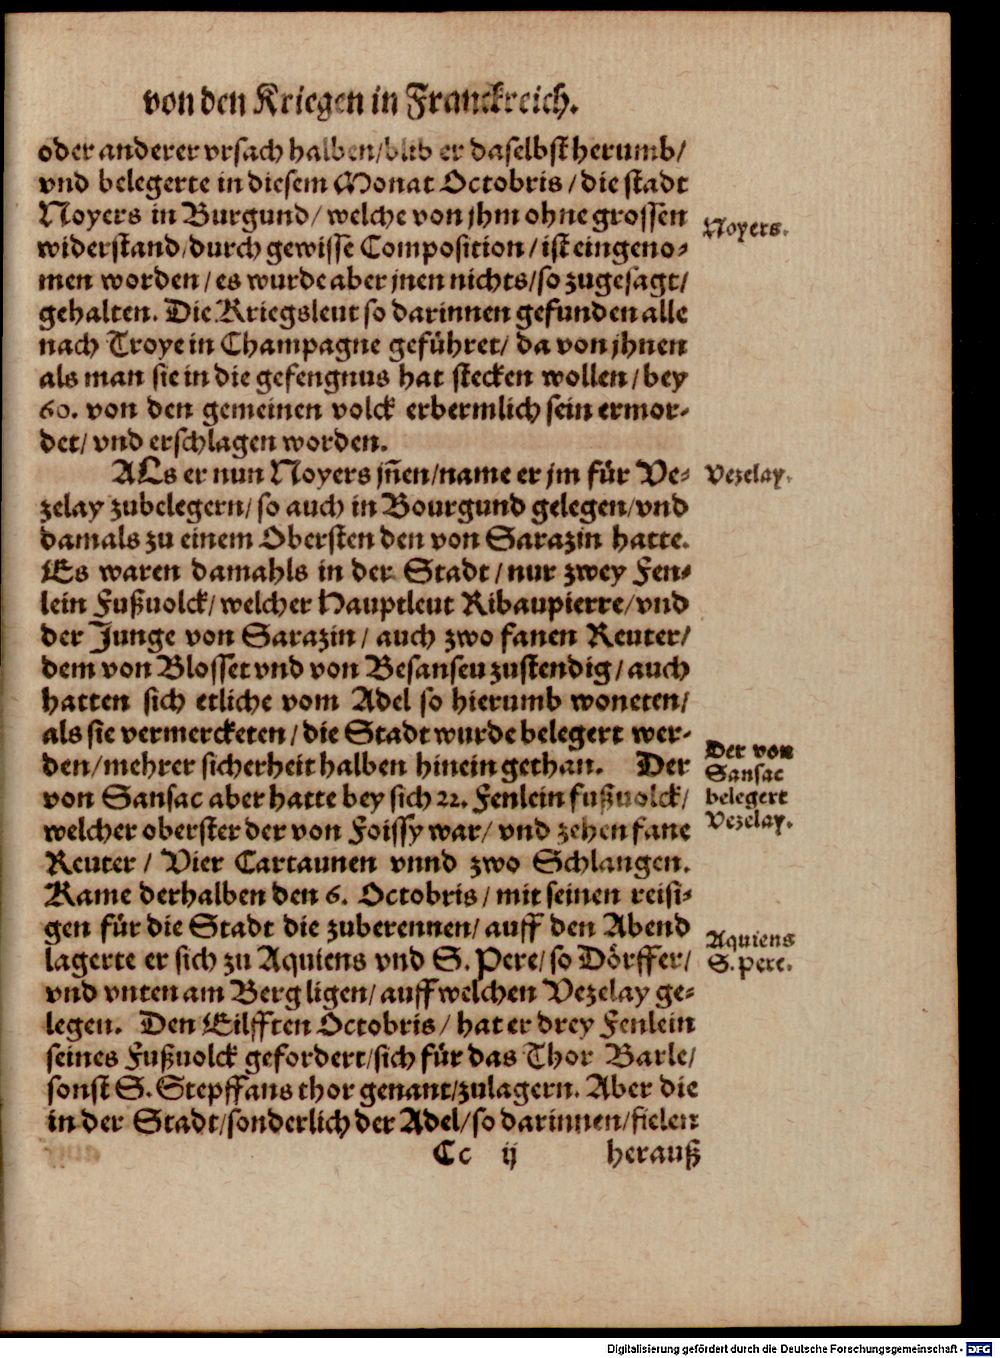 von den Kriegen in Franckreich.
oder anderer vrsach halben/blib er daselbst herumb/
vnd belegerte in diesem Monat Octobris/die stadt
Noyers in Burgund/welche von jhm ohne grossen
Noyers.
widerstand/durch gewisse Composition/ist eingeno-
men worden/es wurde aber jnen nichts/so zugesagt/
gehalten. Die Kriegsleut so darinnen gefunden alle
nach Troye in Champagne geführet/da von jhnen
als man sie in die gefengnus hat stecken wollen/bey
60. von den gemeinen volck erbermlich sein ermor-
det/vnd erschlagen worden.
ALs er nun Noyers jñen/name er jm für Ve-
Vezelay.
zelay zubelegern/so auch in Bourgund gelegen/vnd
damals zu einem Obersten den von Sarazin hatte.
Es waren damahls in der Stadt/nur zwey Fen-
lein Fußuolck/welcher Hauptleut Ribaupierre/vnd
der Junge von Sarazin/auch zwo fanen Reuter/
dem von Blosset vnd von Besanseu zustendig/auch
hatten sich etliche vom Adel so hierumb woneten/
als sie vermercketen/die Stadt wurde belegert wer-
den/mehrer sicherheit halben hinein gethan. Der
von Sansac aber hatte bey sich 22. Fenlein fußuolck/
welcher oberster der von Foissy war/vnd zehen fane
Der von
Sansac
belegert
Vezelay.
Reuter/Vier Cartaunen vnnd zwo Schlangen.
Kame derhalben den 6. Octobris/mit seinen reisi-
gen für die Stadt die zuberennen/auff den Abend
lagerte er sich zu Aquiens vnd S. Pere/so Dörffer/
Aquiens
S. pere.
vnd vnten am Berg ligen/auff welchen Vezelay ge-
legen. Den Eilfften Octobris/hat er drey Fenlein
seines Fußuolck gefordert/sich für das Thor Barle/
sonst S. Stepffans thor genant/zulagern. Aber die
in der Stadt/sonderlich der Adel/so darinnen/fielen
Cc ij herauß
Digitalisierung gefördert durch die Deutsche Forschungsgemeinschaft - DFG